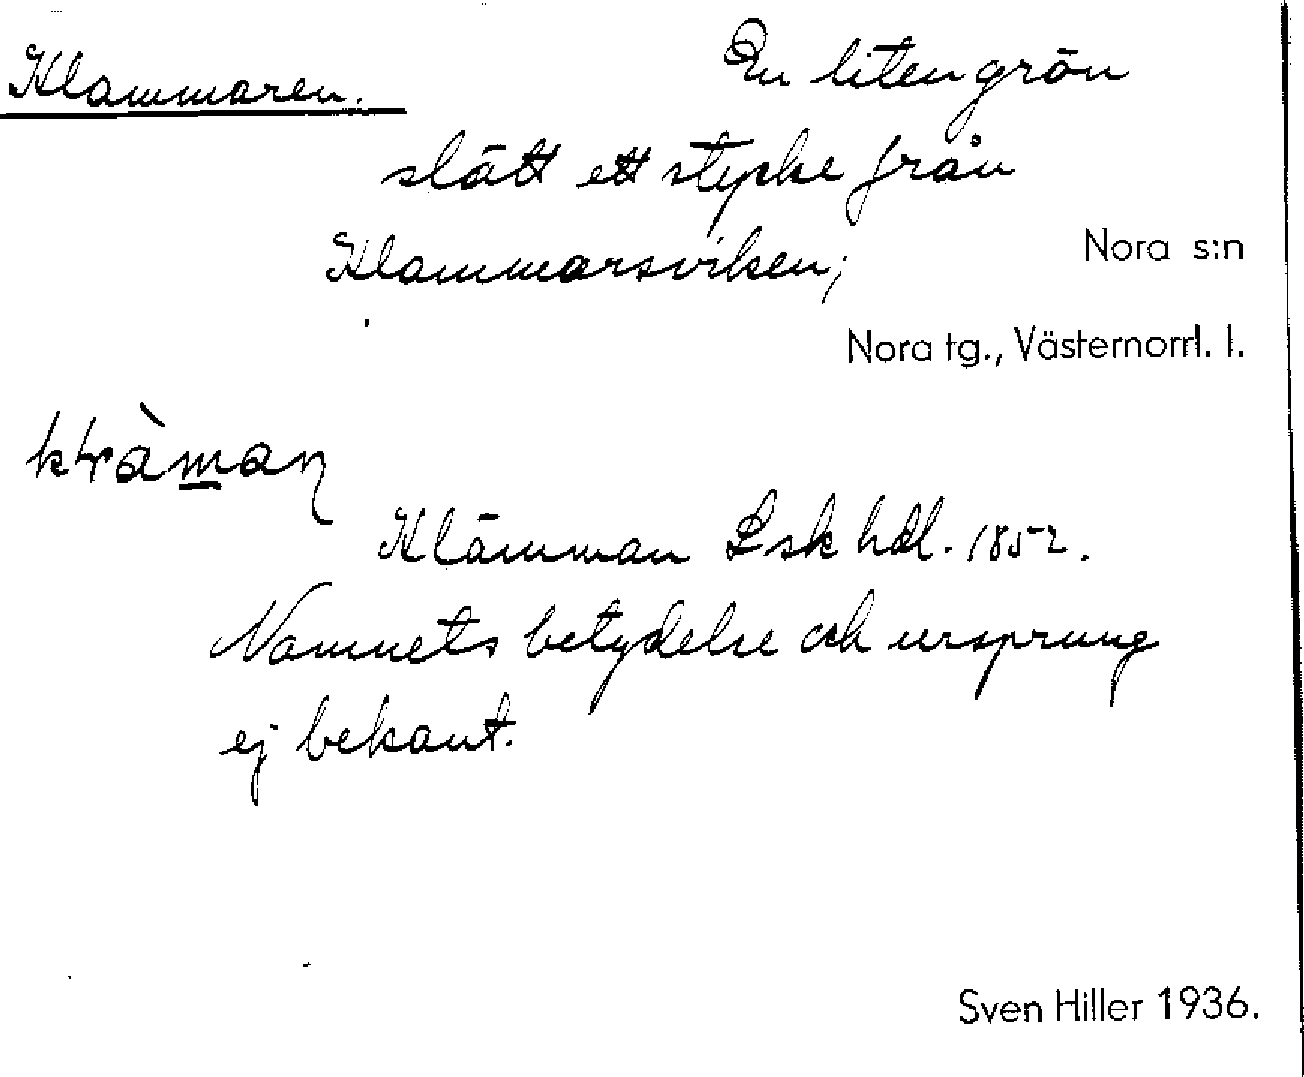 Klammaren.
En liten grön
slätt ett stycke från
Klammarsviken;
Nora s:n
Nora tg., Västernorrl. l.
Klämman Lsk hdl. 1852.
Namnets betydelse och ursprung
ej bekant.
Sven Hiller 1936.